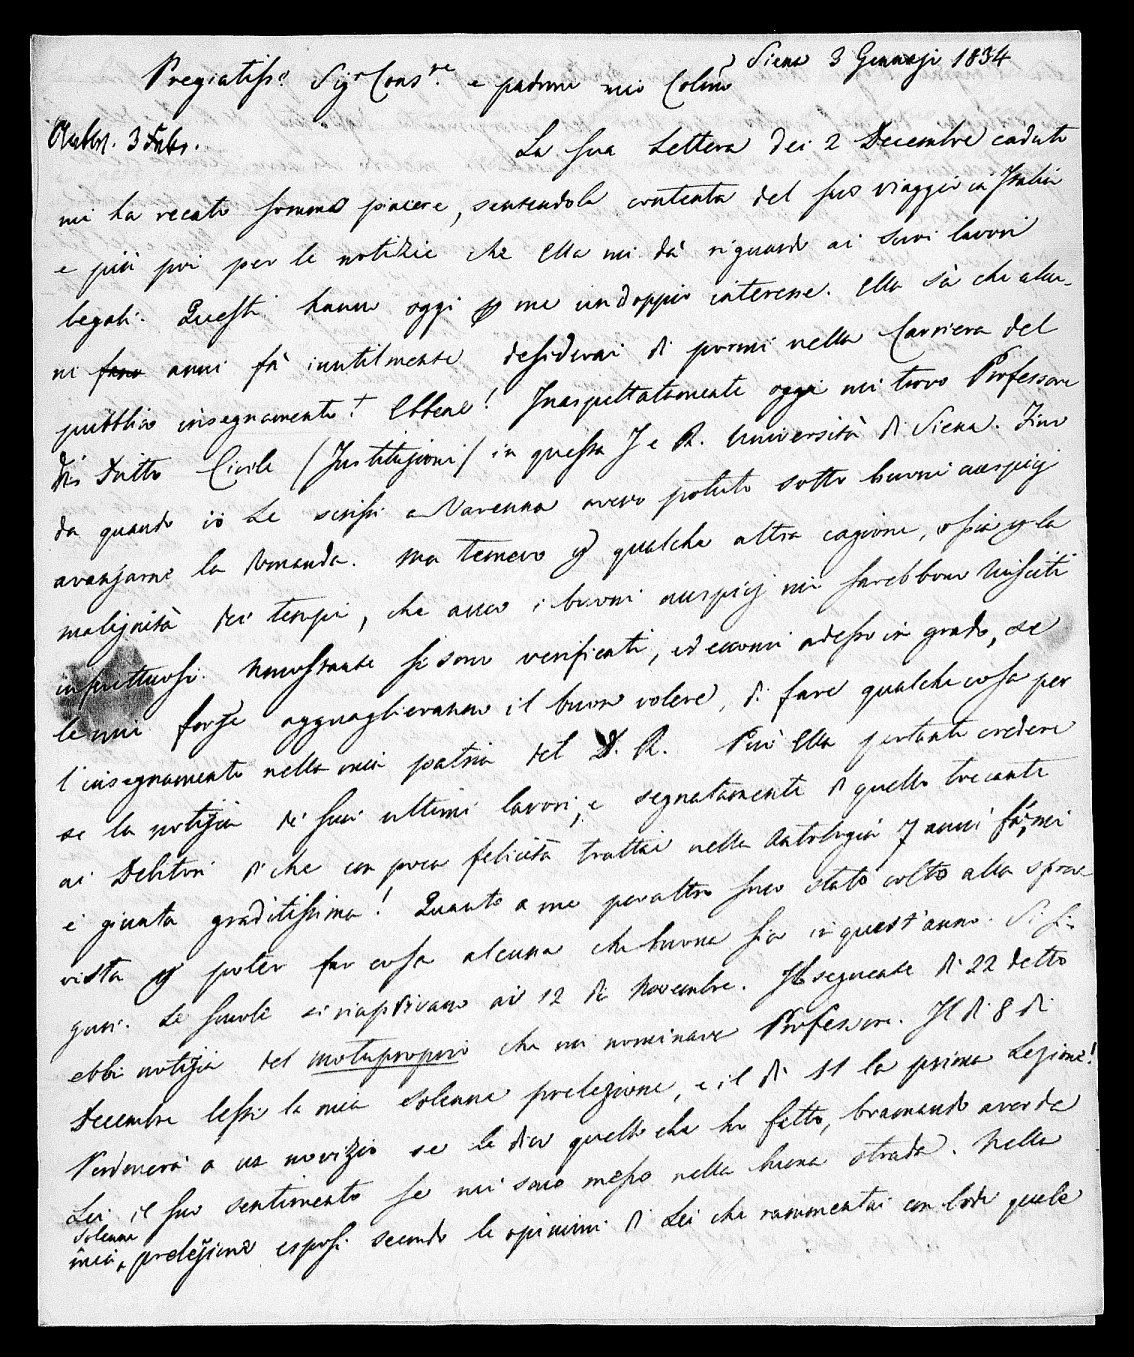 Siena 3 Gennajo 1834
Pregiatiss.o Sig.r Cons.re e padrone mio Colmo
3 Febr.
La sua Lettera dei 2 Decembre caduto
mi ha recato sommo piacere, sentendola contenta del suo viaggio in Italia
e più poi per le notizie che Ella mi dà riguardo ai suoi lavori
legali. Questi hanno oggi p me un doppio interesse. Ella sà che alcu-
ni anni fà inutilmente desiderai di pormi nella Carriera del
pubblico insegnamento! Ebbene! Inaspettatamente oggi mi trovo Professore
di Dritto Civile (Istituzioni) in questa I e R. Università di Siena. Fino
da quando io Le scrissi a Varenna avevo potuto sotto buoni auspicj
avanzarne la domanda. Ma temevo p qualche altra cagione, o sia p la
malignità dei tempi, che anco i buoni auspicj mi sarebbono riusciti
infruttuosi. Nonostante si sono verificati, ed eccomi adesso in grado, se
le mie forze agguaglieranno il buon volere, di fare qualche cosa per
l'insegnamento nella mia patria del D. R. Può Ella pertanto credere
se la notizia de' suoi ultimi lavori, e segnatamente di quello toccante
ai Debitori di che con poca felicità trattai nella Antologia 7 anni fà, mi
è giunta graditissima! Quanto a me peraltro sono stato colto alla sprov-
vista p poter far cosa alcuna che buona sia in quest'anno. Si fi-
guri. Le scuole si riaprivano ai 12 di Novembre. Il seguente dì 22 detto
ebbi notizia del motuproprio che mi nominava Professore. Il dì 8 di
Decembre lessi la mia solenne prelezione, e il dì 11 la prima Lezione!
Perdonerà a un novizio se le dico quello che ho fatto, bramando aver da
Lei il suo sentimento se mi sono messo nella buona strada. Nella
solenne
mia prelezione esposi secondo le opinioni di Lei che rammentai con lode quale